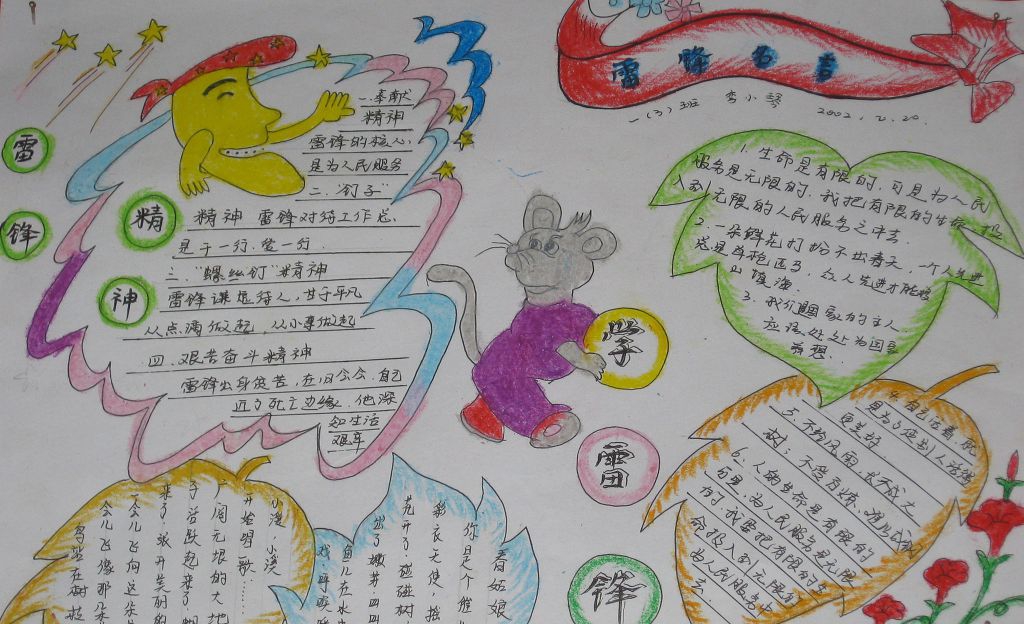 雷锋名言
一(3)班 李小琴 2002.2.20.
雷
锋
精
神
一.奉献
精神
雷锋的核心,
是为人民服务
二."钉子"
精神 雷锋对待工作总
是干一行.爱一行.
三."螺丝钉"精神
雷锋谦虚待人,甘于平凡
从点滴做起,从小事做起
四.艰苦奋斗精神
雷锋出身贫苦,在旧公会.自己
近了死亡边缘.他深
知生活
艰辛
学
雷
锋
1.生命是有限的.可是为人民
服务是无限的.我把有限的生命.投
入到无限的人民服务之中去.
2.一朵鲜花打扮不出春天,一个人先进
总是单枪匹马,众人先进才能
3.我们国家的主人
应该处处为国家
着想.
4.自己活着,就
是为了使别人活得
更美好
5.不经风雨,长不成大
树;不受百炼,难以成
6.人的生命是有限的
可是,为人民服务是无限
的,我要把有限的生
命投入到无限的
为人民服务中
去
小溪,小溪
开始唱歌…
广阔无垠的大地
子跃起来了
来了.张开美丽的
一会儿飞向这朵
会儿飞像那朵
鸟站在树枝
春姑娘
你是个催
彩衣天使.摇
花开了.
出了嫩芽.四
鱼儿在水
戏.呼